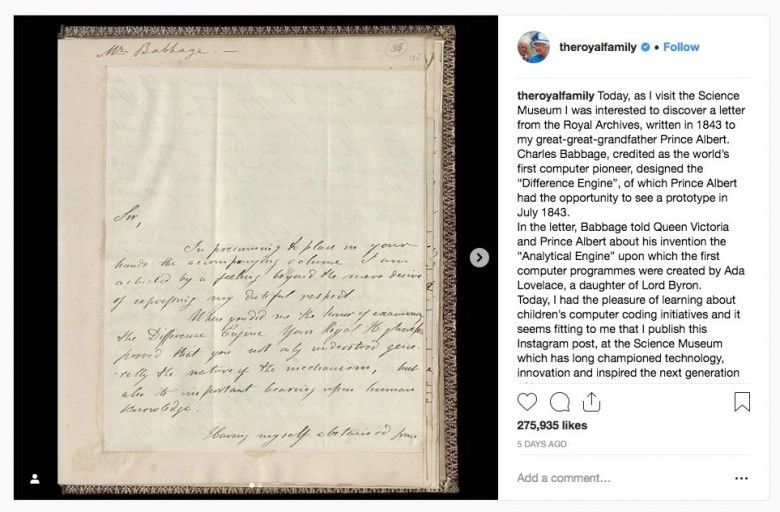 Mr Babbage. —
Sir,
In presuming to place in your
hands the accompanying volume I am
actuated by a feeling beyond the mere desire
of expressing my dutiful respect.
When you did me the honor of examining
the Difference Engine Your Royal Highness
proved that you not only understood gene-
-rally the nature of the mechanism, but
also its important bearing upon human
knowledge.
Having myself abstained from
theroyalfamily • Follow
theroyalfamily Today, as I visit the Science
Museum I was interested to discover a letter
from the Royal Archives, written in 1843 to
my great-great-grandfather Prince Albert.
Charles Babbage, credited as the world's
first computer pioneer, designed the
"Difference Engine", of which Prince Albert
had the opportunity to see a prototype in
July 1843.
In the letter, Babbage told Queen Victoria
and Prince Albert about his invention the
"Analytical Engine" upon which the first
computer programmes were created by Ada
Lovelace, a daughter of Lord Byron.
Today, I had the pleasure of learning about
children's computer coding initiatives and it
seems fitting to me that I publish this
Instagram post, at the Science Museum
which has long championed technology,
innovation and inspired the next generation
275,935 likes
5 DAYS AGO
Add a comment...